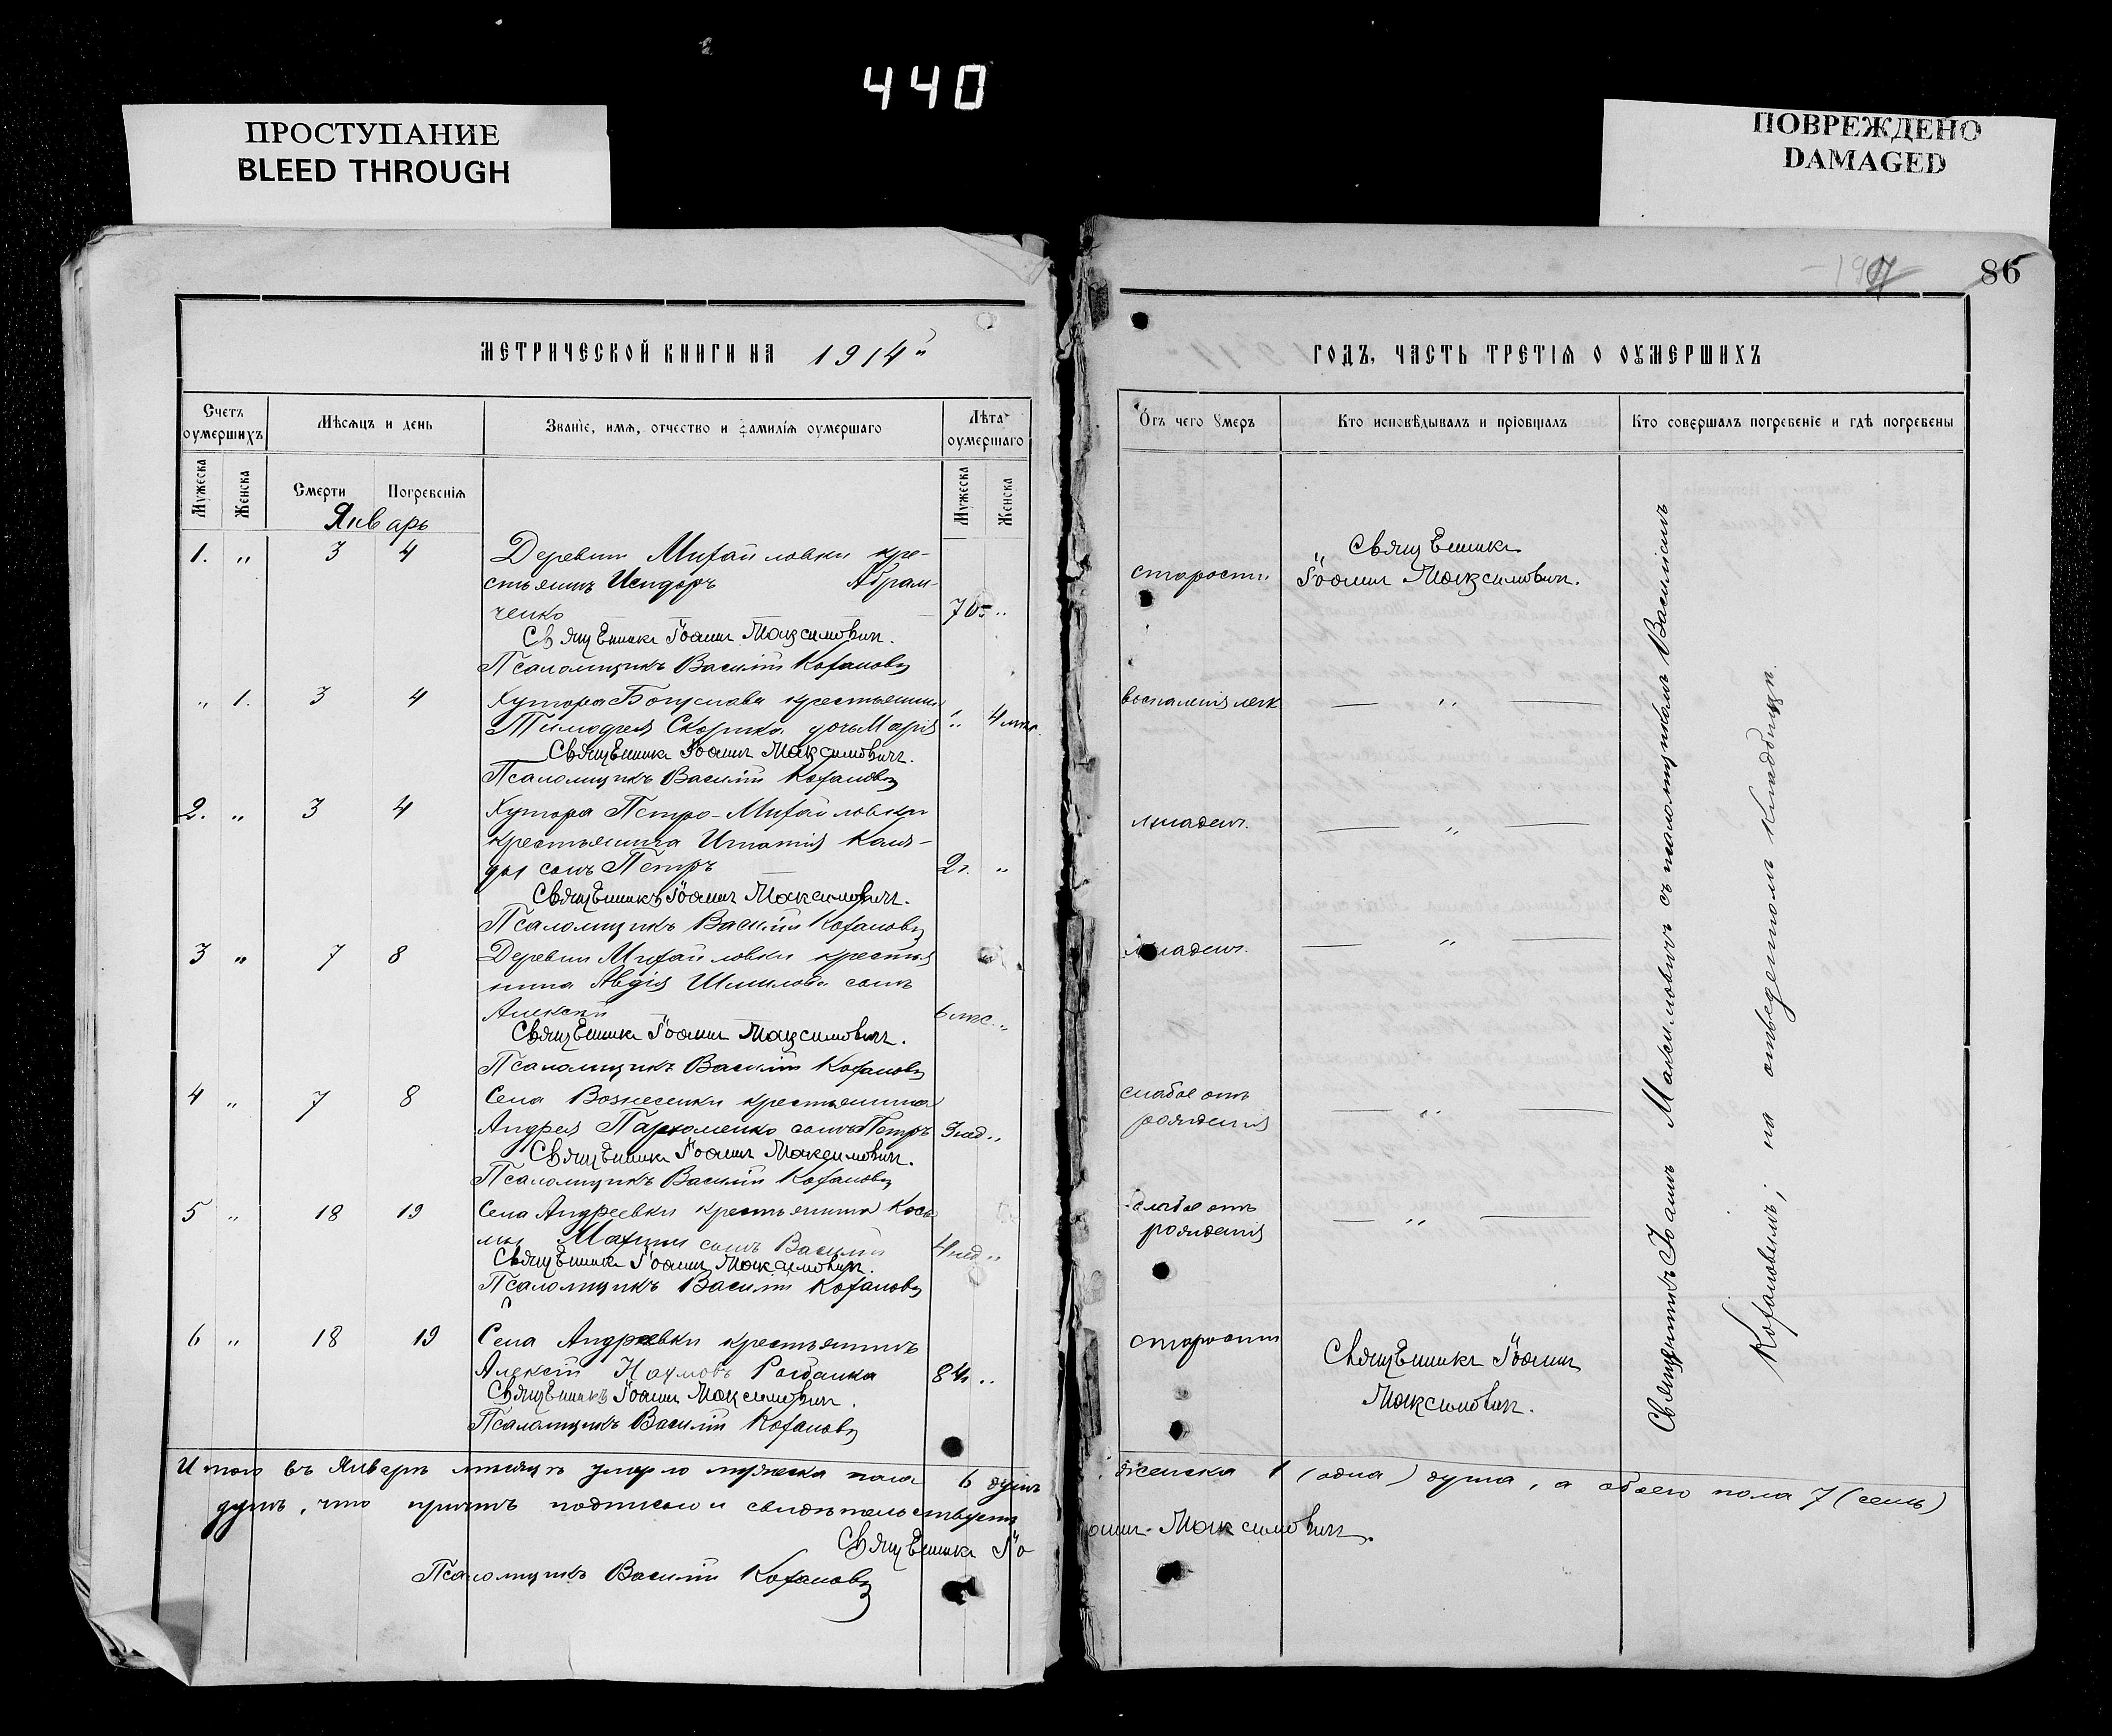 440
ПРОСТУПАНИЕ
BLEED THROUGH
ПОВРЕЖДЕНО
DAMAGED
86
МЕТРИЧЕСКОЙ КНИГИ НА 1914
Счетъ оумершихъ
Мѣсяцъ и день
Званіе, имя, отчество и фамилія оумершаго
Лѣта оумершаго
Мужеска
Женска
Смерти
Погребенія
Мужеска
Женска
Январь
1. „ 3 4 Деревни Михайловки кре-
стьянинъ Исидоръ Абрам-
ченко 70 „
Священникъ Іоаннъ Максимович.
Псаломщикъ Василій Кохановъ
„ 1. 3 4 Хутора Богуслава крестьянина
Тимофея Скорика дочь Марія „ 4
Священникъ Іоаннъ Максимович.
Псаломщикъ Василій Кохановъ
2. „ 3 4 Хутора Петро-Михайловки
крестьянина Игнатія
сынъ Петръ 2г. „
Священникъ Іоаннъ Максимович.
Псаломщикъ Василій Кохановъ
3 „ 7 8 Деревни Михайловки крестья
нина Авдія сынъ
Алексій 6 мѣс. „
Священникъ Іоаннъ Максимович.
Псаломщикъ Василій Кохановъ
4 „ 7 8 Села Вознесенки крестьянина
Андрея Пархоменко сынъ Петръ 3 нед „
Священникъ Іоаннъ Максимович.
Псаломщикъ Василій Кохановъ
5 „ 18 19 Села Андреевки крестьянина Козь
мы сынъ Василій 4 нед „
Священникъ Іоаннъ Максимович.
Псаломщикъ Василій Кохановъ
6 „ 18 19 Села Андреевки крестьянинъ
Алексій Наумовъ 84 „
Священникъ Іоаннъ Максимович.
Псаломщикъ Василій Кохановъ
Итого въ Январѣ мѣсяцѣ умерло мужеска пола 6 душъ
душъ, что причтъ подписью и свидѣтельствуетъ
Священникъ Іо
Псаломщикъ Василій Кохановъ
ГОДЪ, ЧАСТЬ ТРЕТІЯ О ОУМЕРШИХЪ
Отъ чего Умеръ
Кто исповѣдывалъ и пріобщалъ
Кто совершалъ погребеніе и гдѣ погребены
старости
Священникъ
Іоаннъ Максимович.
воспаленія легк — „ —
младен. — „ —
младен. — „ —
слабое отъ
рожденія — „ —
слабое отъ
рожденія — „ —
старости
Священникъ Іоаннъ
Максимович.
Священникъ Іоаннъ Максимовичъ съ псаломщикомъ Василіемъ
Кохановымъ; на отведенномъ кладбищѣ.
женска 1 (одна) душа, а обоего пола 7 (семь)
оаннъ Максимович.